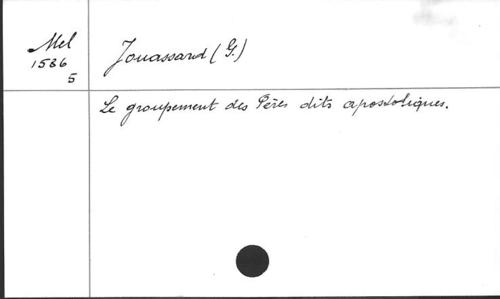 Mel
1586
5
Jouassard (G.)
Le groupement des Pères dits apostoliques.